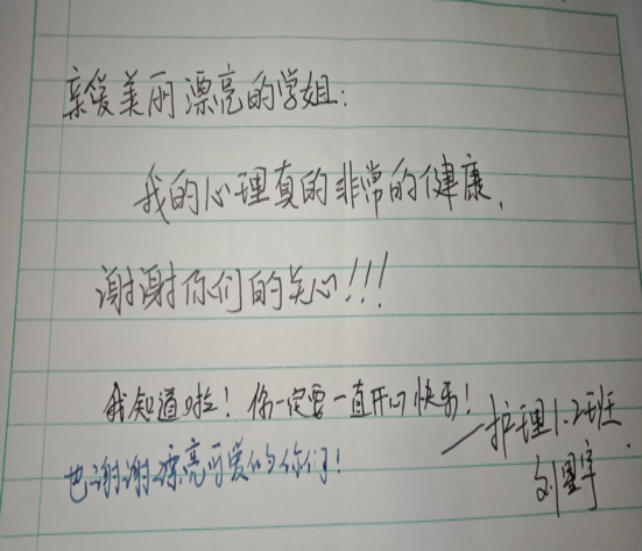 亲爱美丽漂亮的学姐：
我的心理真的非常的健康，
谢谢你们的关心!!!
我知道啦！你一定要一直开心快乐！
——护理1.2班
也谢谢漂亮可爱的你们！
刘宇